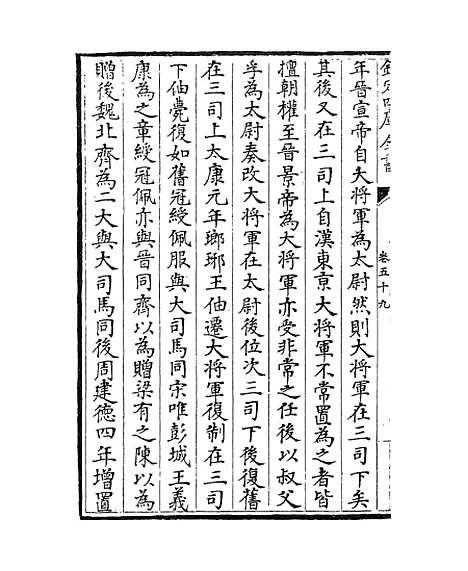 欽定四庫全書
卷五十九
年晉宣帝自大將軍為太尉然則大將軍在三司下矣
其後又在三司上自漢東京大將軍不常置為之者皆
擅朝權至晉景帝為大將軍亦受非常之任後以叔父
孚為太尉奏改大將軍在太尉後位次三司下後復舊
在三司上太康元年瑯琊王伷遷大將軍復制在三司
下伷薨復如舊冠綬佩服與大司馬同宋唯彭城王義
康為之章綬冠佩亦與晉同齊以為贈梁有之陳以為
贈後魏北齊為二大與大司馬同後周建德四年增置